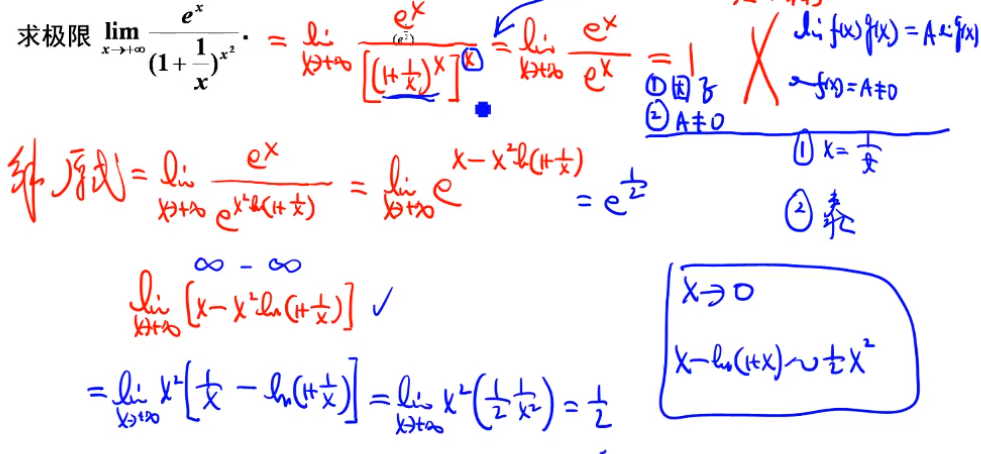 求极限 lim_{x→+∞} e^x / (1 + 1/x)^{x^2} . = lim_{x→+∞} e^x / [(1+1/x)^x]^x = lim_{x→+∞} e^x / e^x = 1
(e^x)
① 因子
② A≠0
lim f(x)g(x) = A lim g(x)
f(x) = A≠0
① x = 1/t
② 泰
解 原式 = lim_{x→+∞} e^x / e^{x^2 ln(1+1/x)} = lim_{x→+∞} e^{x - x^2 ln(1+1/x)} = e^{1/2}
∞ - ∞
lim_{x→+∞} [x - x^2 ln(1+1/x)] ✓
= lim_{x→+∞} x^2 [1/x - ln(1+1/x)] = lim_{x→+∞} x^2 (1/2 1/x^2) = 1/2
x→0
x - ln(1+x) ~ 1/2 x^2